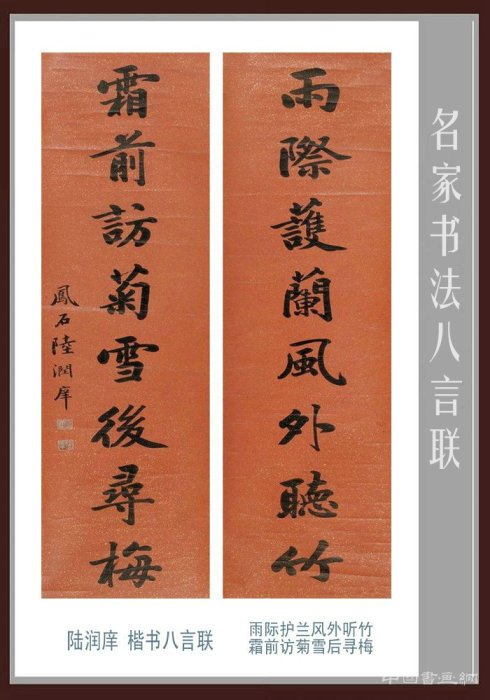 名家书法八言联
雨際護蘭風外聽竹
霜前訪菊雪後尋梅
鳳石陸潤庠
陆润庠 楷书八言联
雨际护兰风外听竹
霜前访菊雪后寻梅
中国書画網